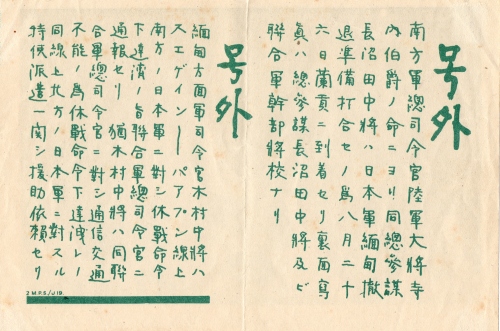 号外
南方軍總司令官陸軍大將寺
内伯爵ノ命ニヨリ同總参謀
長沼田中將ハ日本軍緬甸撤
退準備打合セノ為八月二十
六日蘭貢ニ到着セリ裏面寫
眞ハ總参謀長沼田中將及ビ
聯合軍幹部將校ナリ
号外
緬甸方面軍司令官木村中將ハ
スエゲイン——パアプン線上
南方ノ日本軍ニ対シ休戰命令
下達済ノ旨聯合軍總司令官ニ
通報セリ 猶木村中將ハ同聯
合軍總司令官ニ對シ通信交通
不能ノ為休戰命令下達洩レノ
同線上北方ノ日本軍ニ對スル
特使派遣ニ関シ援助依頼セリ
2 M.P.S./J 19.